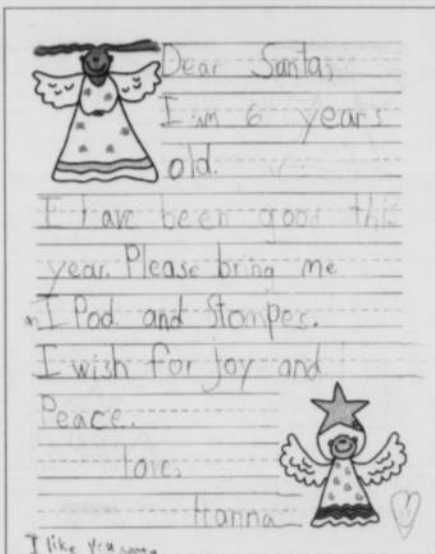 Dear Santa,
I am 6 years
old.
I have been good this
year. Please bring me
an I Pod and Stompes.
I wish for joy and
Peace.
Love,
Hanna
I like you santa